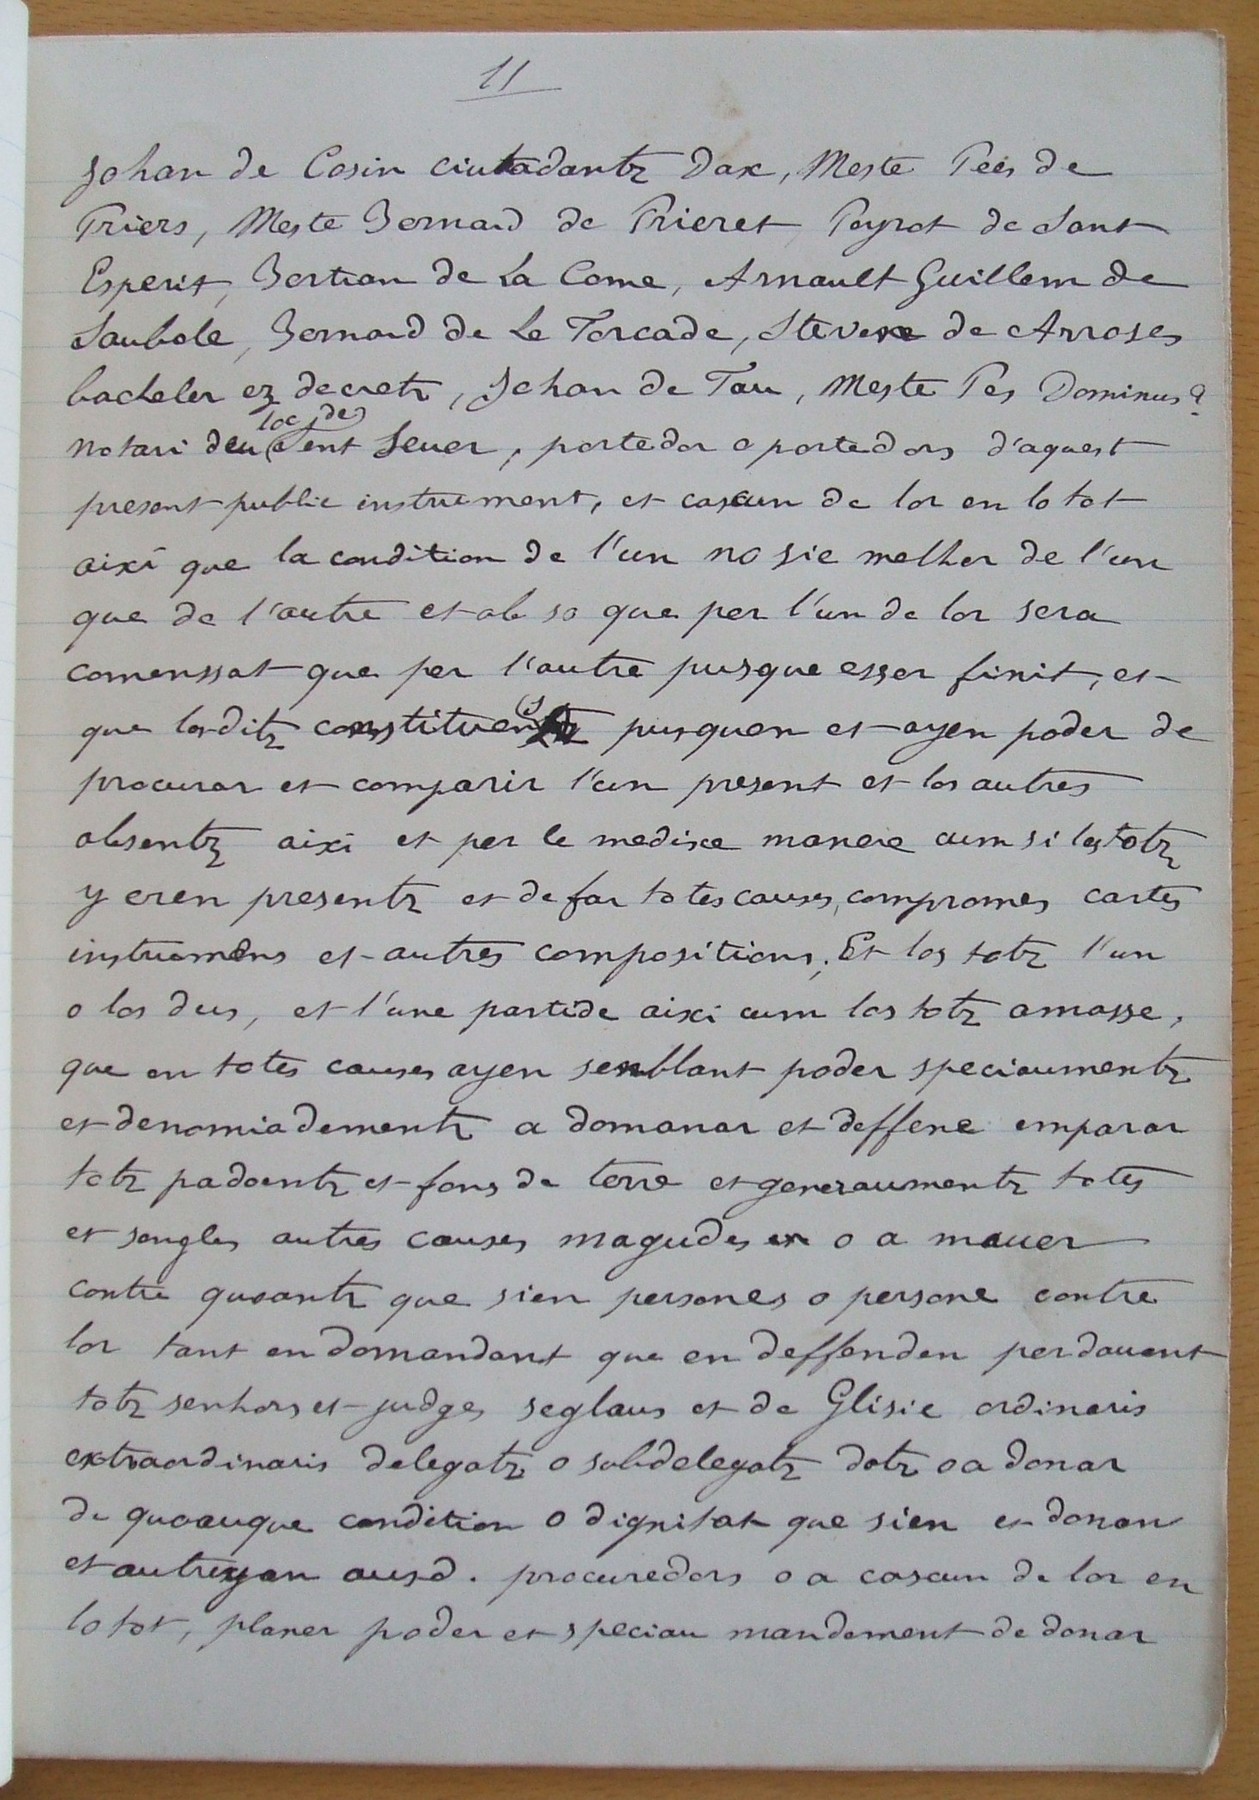 11
Johan de Cosin ciutadantz Dax, Meste Pées de
Priers, Meste Bernard de Prieret Peyrot de Sant
Esperit, Bertran de La Come, Arnault Guillem de
Saubole, Bernard de Le Forcade, Stevene de Arroses
bacheler ez decretz, Johan de Tau, Meste Pes Dominus?
notari deu loc de Sent Sever, portedor o portedors d'aquest
present public instrument, et cascun de lor en lo tot
aixi que la condition de l'un no sie melhor de l'un
que de l'autre et ab so que per l'un de lor sera
comenssat que per l'autre pusque esser finit, et
que losditz constituen(s) pusquen et ayen poder de
procurar et comparir l'un present et los autres
absentz aixi et per le medixe manere cum si les totz
y eren presentz et de far totes causes, compromes cartes
instrumens et autres compositions, Et los totz l'un
o los dus, et l'une partide aixi cum los totz amasse,
que en totes causes ayen semblant poder speciaumentz
et denomiadementz a domanar et deffene emparar
totz padoentz et fons de terre et generaumentz totes
et sengles autres causes magudes o a mauer
contre quoantz que sien persones o persone contre
lor tant en domandant que en deffenden perdauant
totz senhors et judges seglaus et de Glisie ordinaris
extraordinaris delegatz o subdelegatz datz o a donar
de quoauque condition o dignitat que sien et donan
et autreyan ausd. procuredors o a cascun de lor en
lo tot, planer poder et speciau mandement de donar